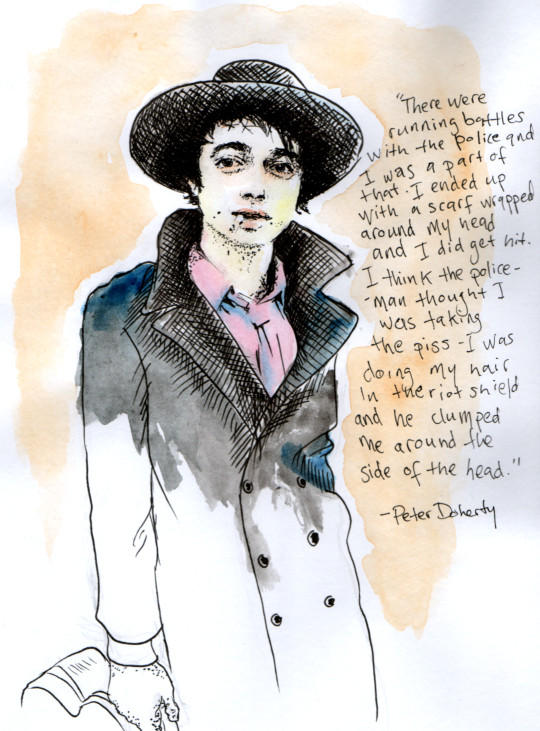 "There were
running battles
with the police and
I was a part of
that. I ended up
with a scarf wrapped
around my head
and I did get hit.
I think the police-
-man thought I
was taking
the piss - I was
doing my hair
in the riot shield
and he clumped
me around the
side of the head."
-Peter Doherty